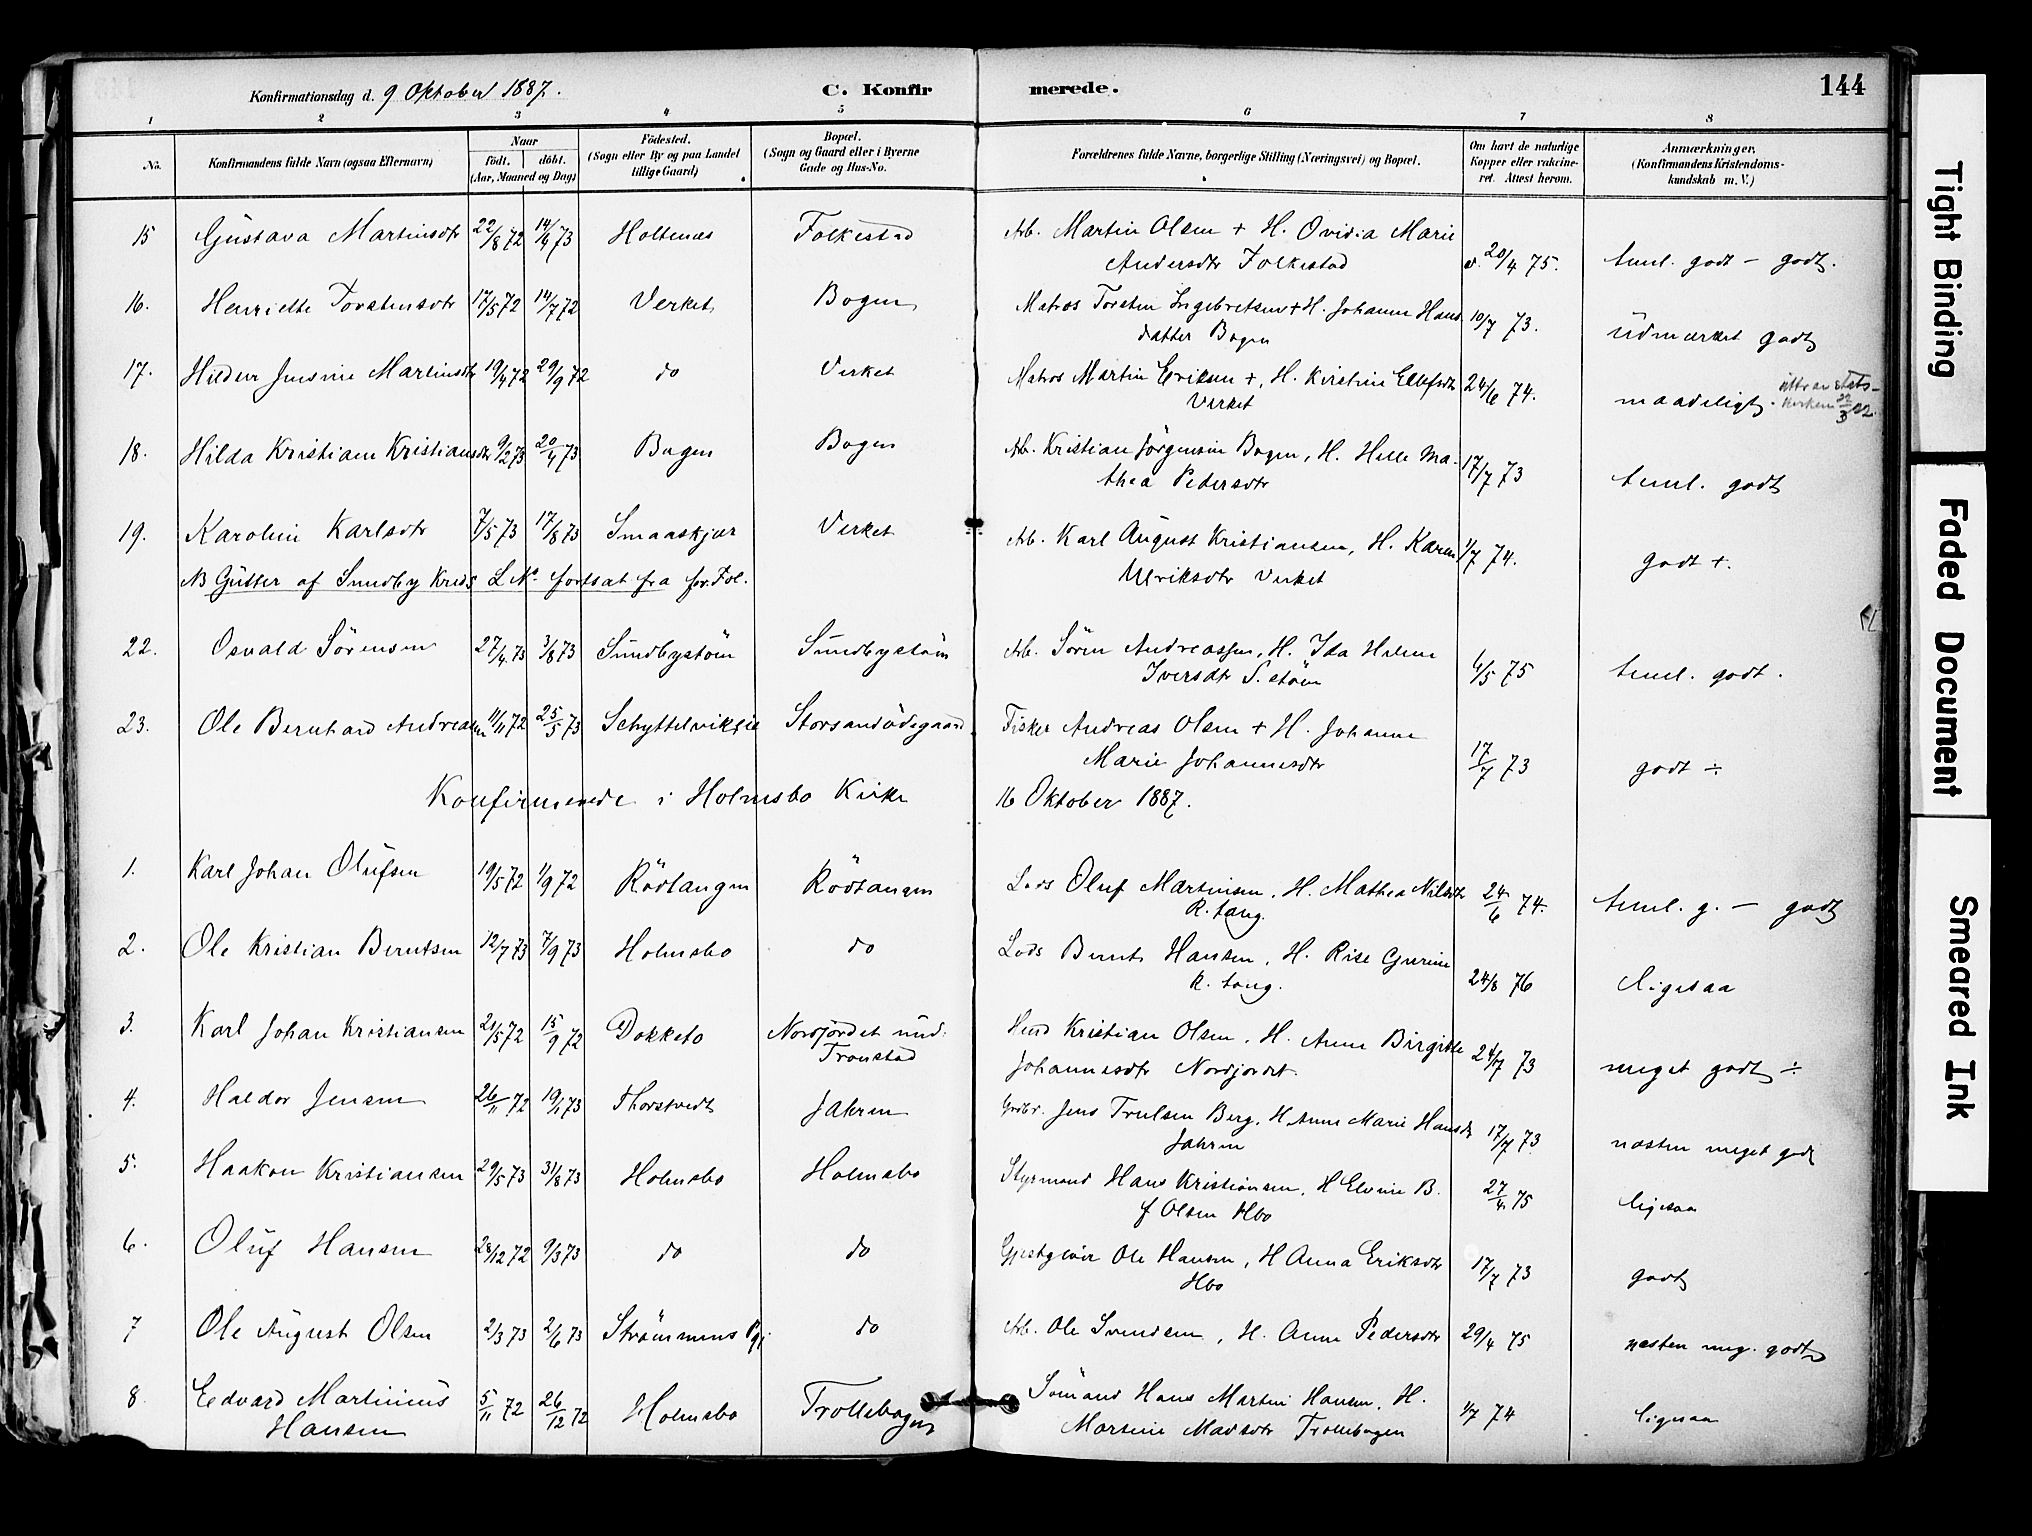 Konfirmationsdag d. 9 Oktober 1887.
C. Konfirmerede.
144
1 2 3 4 5 6 7 8
No. Konfirmandens fulde Navn (ogsaa Efternavn) Naar födt. döbt. (Aar, Maaned og Dag) Födested. (Sogn eller By og paa Landet tillige Gaard) Bopæl. (Sogn og Gaard eller i Byerne Gade og Hus-No. Forældrenes fulde Navne, borgerlige Stilling (Næringsvei) og Bopæl. Om havt de naturlige Kopper eller vakcineret. Attest herom. Anmærkninger. (Konfirmandens Kristendomskundskab m. V.)
15 Gustava Martinsdtr 22/8 72 14/4 73 Holtenæs Folkestad Arb. Martin Olsen + H. Ovidia Marie
Andersdtr Folkestad v. 20/4 75. teml. godt - godt.
16. Henriette Torstensdtr 17/5 72 14/7 72 Verket Bogen Matros Torsten Ingebretsen + H. Johanne Hans
datter Bogen 10/7 73. udmærket godt
17. Hildur Martinsdtr 19/4 72 29/9 72 do Verket Matros Martin Eriksen +, H. Kirstine Ellefsdtr
Verket 24/6 74. maadeligt. uttr av Stats-
kirken 22/3 22.
18. Hilda Kristiane Kristiansdtr 9/2 73 20/4 73 Bogen Bogen Arb. Kristian Jörgensen Bogen, H. Helle Ma-
thea Pedersdtr 17/7 73 teml. godt
19. Karoline Karlsdtr 7/5 73 17/8 73 Smaaskjær Verket Arb. Karl August Kristiansen, H. Karen
Ulriksdtr Verket 1/7 74. godt +.
NB Gutter af Sundby Kreds L No fortsat fra for. Fol.
22. Osvald Sörensen 27/4 73 3/8 73 Sundbystöm Sundbystöm Arb. Sören Andreassen, H. Ida Helene
Iversdtr S. stöm 6/5 75 teml. godt.
23. Ole Bernhard Andreasen 11/11 72 25/5 73 Schyttelviksie Storsandödegaard Fisker Andreas Olsen + H. Johanne
Marie Johannesdtr 17/7 73 godt ÷
Konfirmerede i Holmsbo Kirke 16 Oktober 1887.
1. Karl Johan Olufsen 19/5 72 1/9 72 Rödtangen Rödtangen Lods Oluf Martinsen, H. Mathea Nilsdtr
R. tang. 24/6 74. teml. g. - godt
2. Ole Kristian Berntsen 12/7 73 7/9 73 Holmsbo do Lods Bernt Hansen, H. Rise Gurine
R. tang. 24/8 76 ligesaa
3. Karl Johan Kristiansen 21/5 72 15/9 72 Dokketo Nordjordet und.
Tronstad Kristian Olsen, H. Anne Birgitte
Johannesdtr Nordjordet. 24/7 73 meget godt ÷
4. Haldor Jensen 26/11 72 19/1 73 Thorstvedt Jahren Grdbr. Jens Trulsen Berg, H. Anne Marie Hansdtr
Jahren 17/7 73 næsten meget godt
5. Haakon Kristiansen 29/5 73 31/8 73 Holmsbo Holmsbo Styrmand Hans Kristiansen, H Elvine B.
f Olsen Hbo 27/4 75 ligesaa
6. Oluf Hansen 28/12 72 9/3 73 do do Gjestgiver Ole Hansen, H Anna Eriksdtr
Hbo 17/7 73 godt
7 Ole August Olsen 2/3 73 2/6 73 Strömmens Pgj do Arb. Ole Svendsen, H. Anne Pedersdtr 29/4 75 næsten meg. godt
8 Edvard Martinius
Hansen 5/11 72 26/12 72 Holmsbo Trollebogen Sömand Hans Martin Hansen, H.
Martine Madsdtr Trollebogen 1/7 74 ligesaa
Tight Binding
Faded Document
Smeared Ink